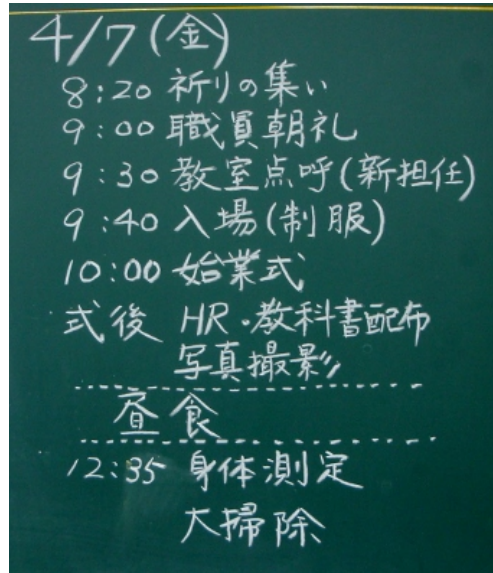 4/7(金)
8:20 祈りの集い
9:00 職員朝礼
9:30 教室点呼(新担任)
9:40 入場(制服)
10:00 始業式
式後 HR・教科書配布
写真撮影
昼食
12:35 身体測定
大掃除